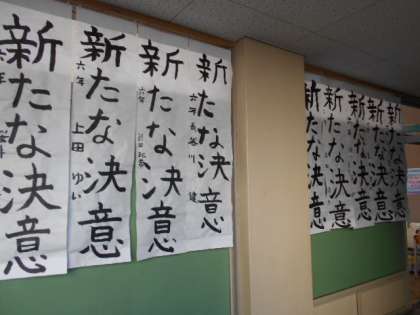 新たな決意
六年
新たな決意
六年 上田 ゆい
新たな決意
六年
新たな決意
六年 長谷川 健
新たな決意
新たな決意
新たな決意
新たな決意
新たな決意